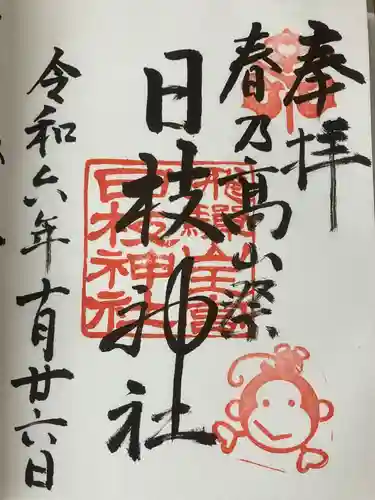 奉拝
春乃高山祭
日枝神社
日枝神社
令和六年十月廿六日